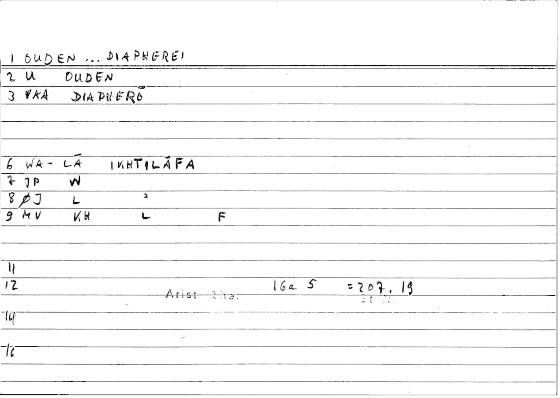 1 OUDEN ... DIAPHEREI
2 U OUDEN
3 VAA DIAPHERŌ
6 WA-LĀ IKHTILĀFA
7 JP W
8 ØJ L ʾ
9 MV KH L F
11
12 16a 5 =207, 19
Arist
14
16